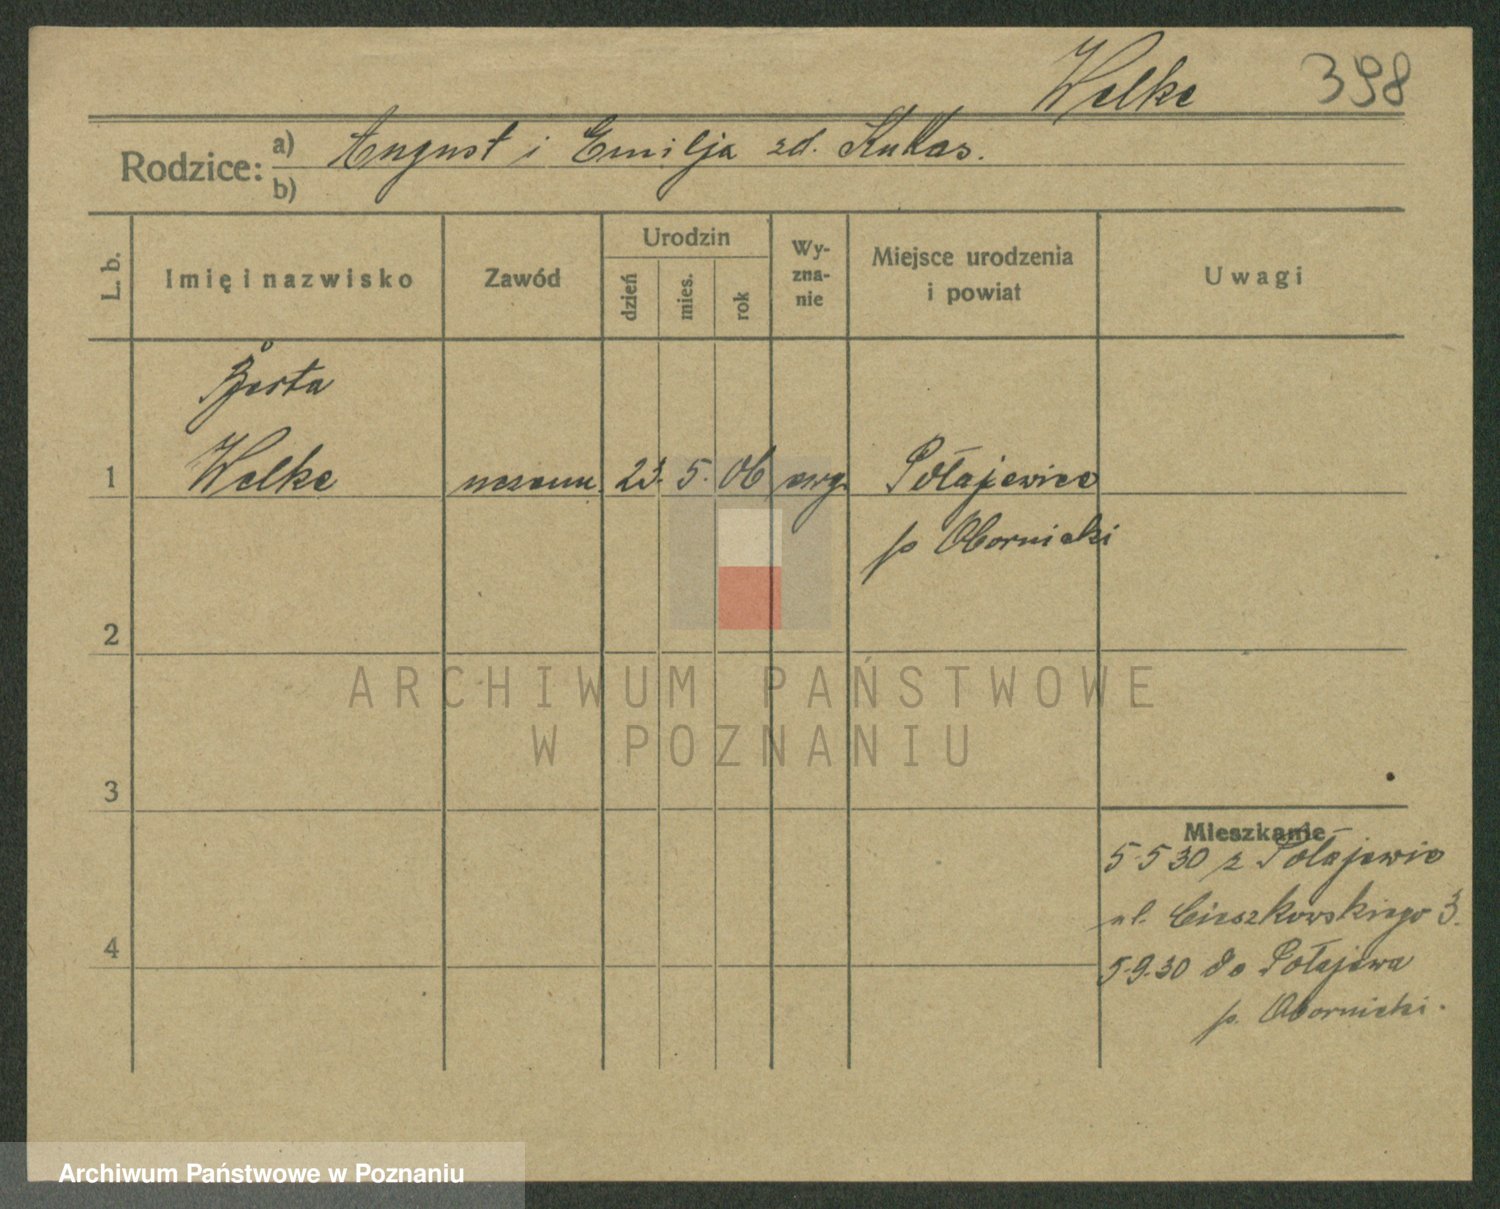 Welke 398
Rodzice: a) August i Emilja zd. Kukas.
b)
L. b.
Imię i nazwisko
Zawód
Urodzin
dzień
mies.
rok
Wy-
zna-
nie
Miejsce urodzenia
i powiat
Uwagi
Berta
1 Welke 23. 5. 06 ewg. Połajewice
p Obornicki
2
3
4
Mieszkanie
5-5 30 z Połajewic
ul. Cieszkowskiego 3.
5-9.30 do Połajewa
p. Obornicki.
ARCHIWUM PAŃSTWOWE
W POZNANIU
Archiwum Państwowe w Poznaniu